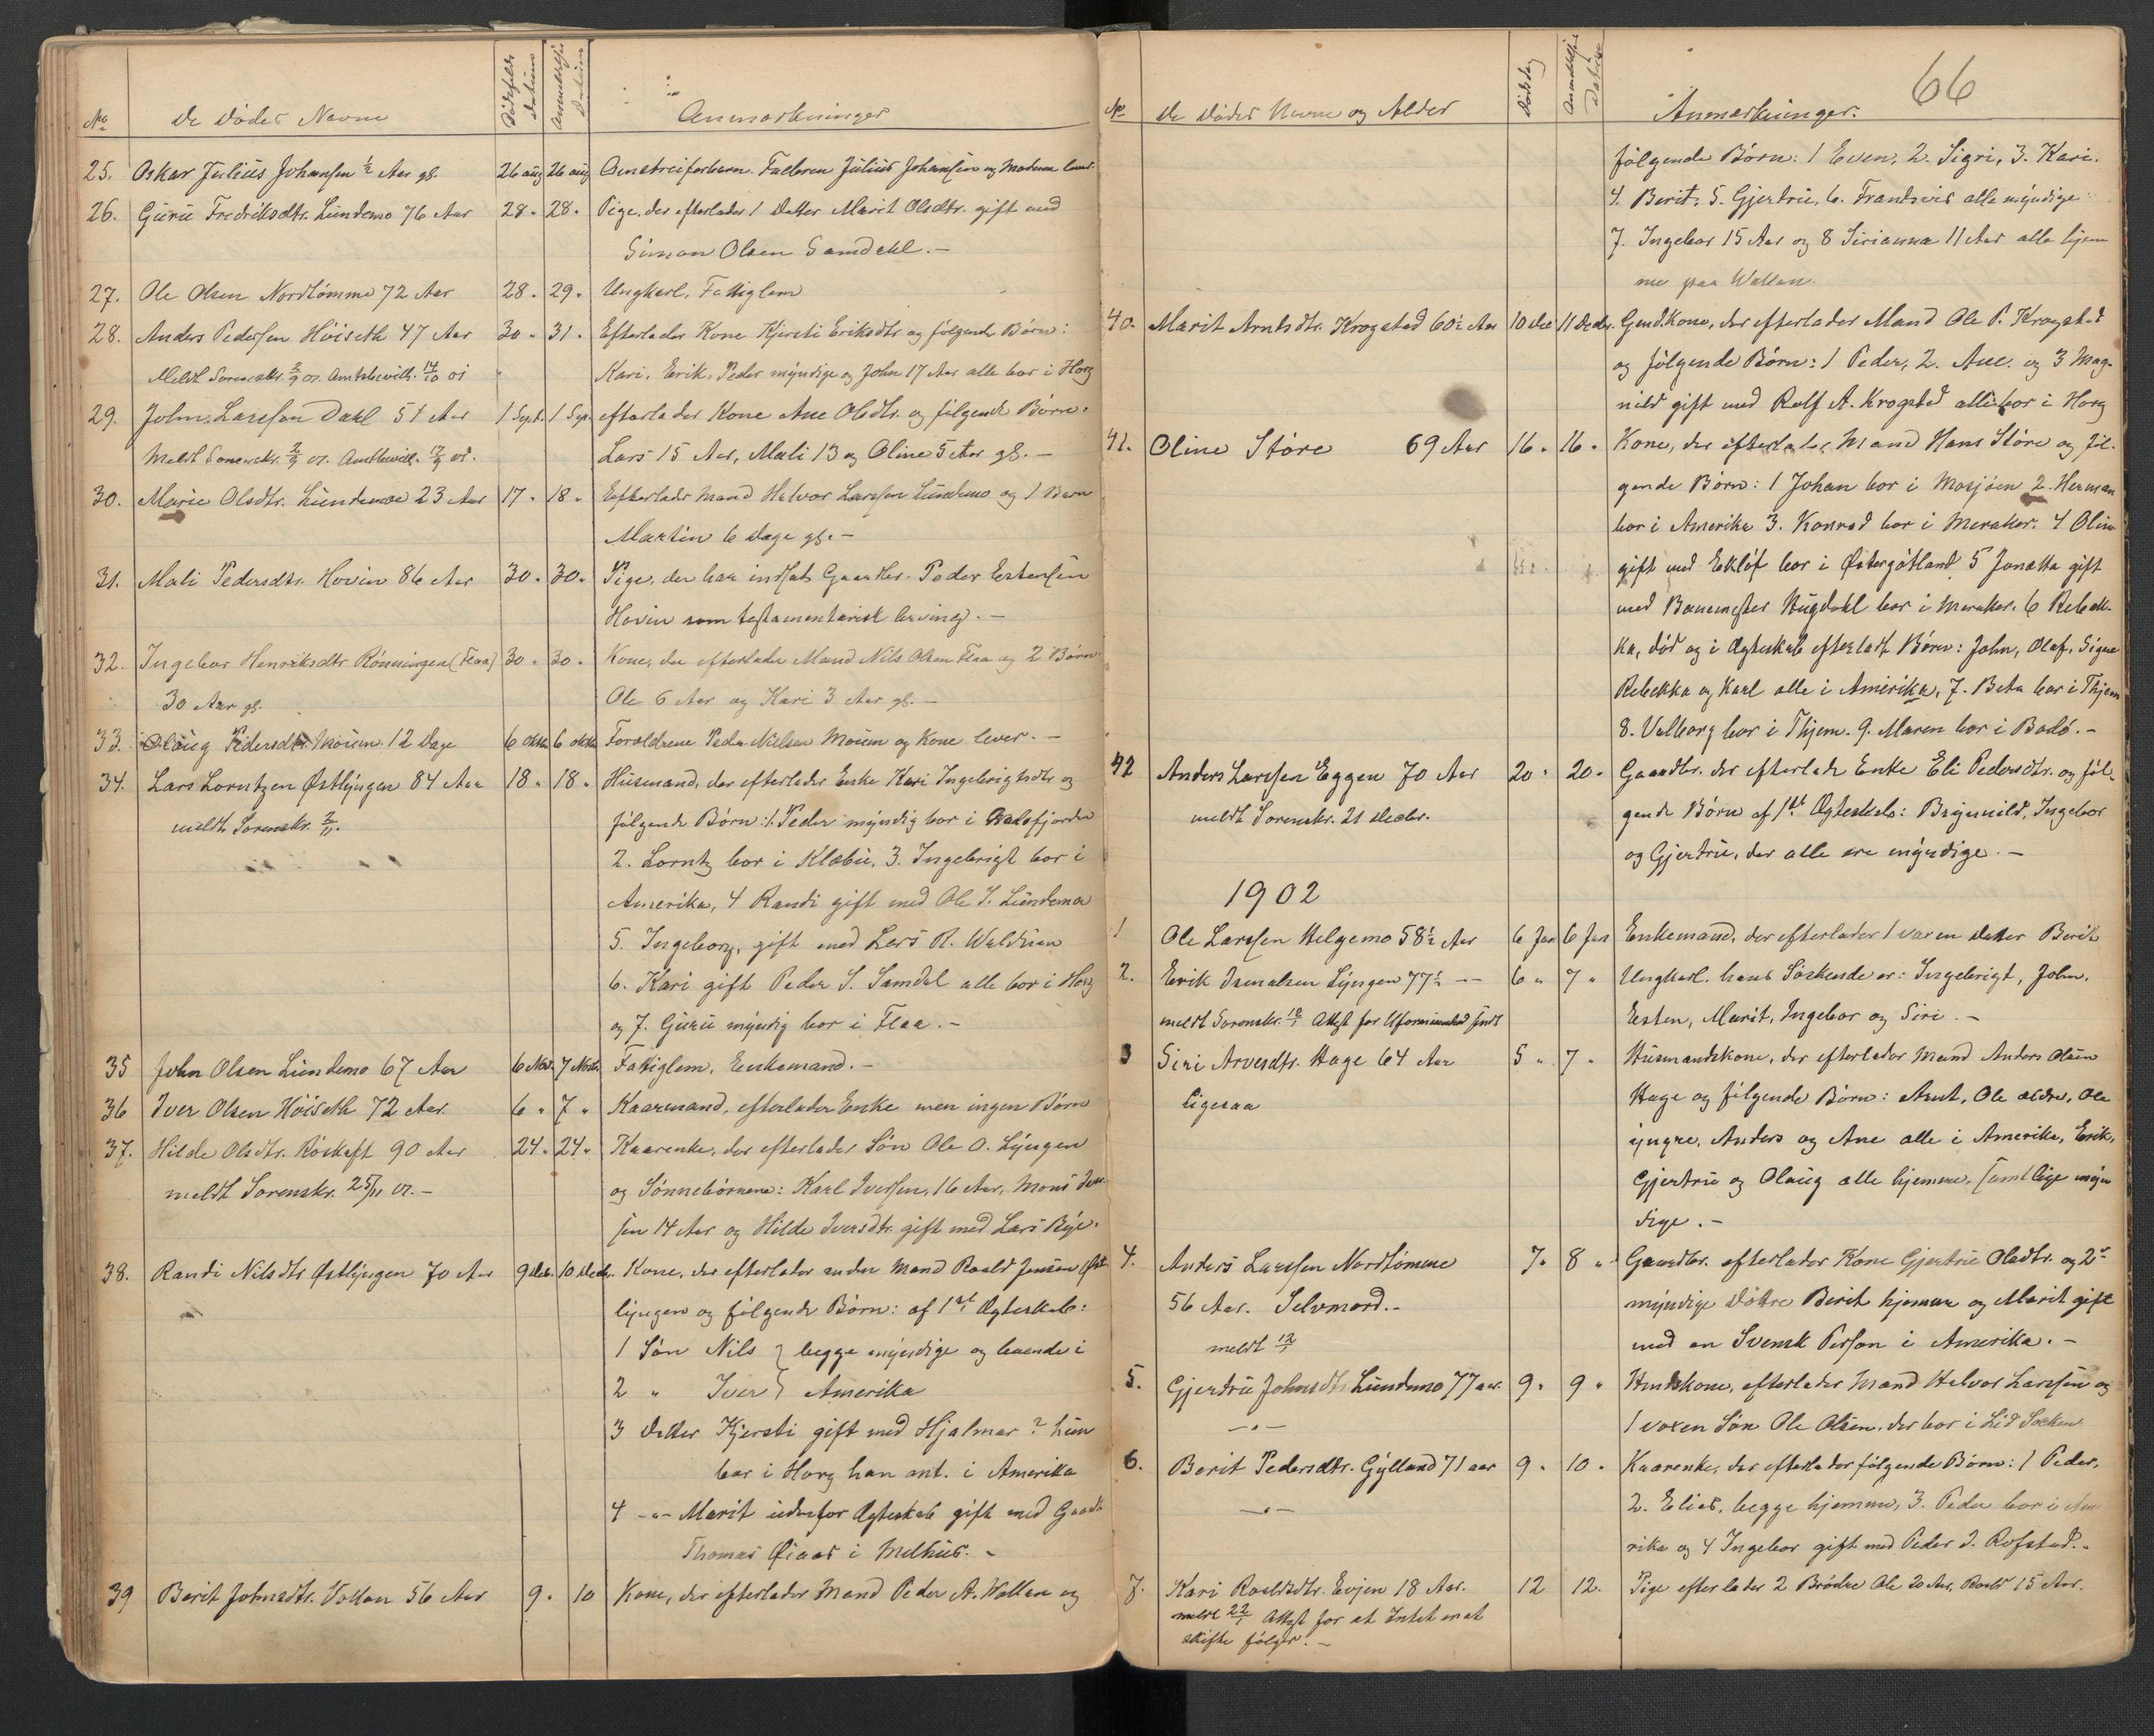 No De Dødes Navne Dødsfald Datum Anmeldelse Datum Anmærkninger
25. Oskar Julius Johansen ½ Aar gl. 26 aug 26 aug Omstreiferbarn. Faderen Julius Johansen og Moderen lever.
26. Guru Fredriksdtr. Lundemo 76 Aar 28 " 28 " Pige, der efterlader 1 Datter Marit Olsdtr. gift med
Simon Olsen Samdahl. -
27. Ole Olsen Nordtømme 72 Aar 28 " 29 " Ungkarl, Fattiglem
28. Anders Pedersen Høiseth 47 Aar 30 " 31 " Efterlader Kone Kjersti Eriksdtr og følgende Børn:
Meldt Sorenskr. 2/9 01. Amtsbevill. 14/10 01 Kari, Erik, Peder myndige og John 17 Aar alle bor i Horg
29. John Larssen Dahl 51 Aar 1 Sept. 1 Sep. efterlader Kone Ane Olsdtr. og følgende Børn.
Meldt Sorenskr. 2/9 01. Amtbevill. 17/9 01. Lars 15 Aar, Mali 13 og Oline 5 Aar gl. -
30. Marie Olsdtr. Lundemoe 23 Aar 17 " 18 " Efterlader Mand Halvor Larssen Lundemo og 1 Barn
Martin 6 Dage gl. -
31. Mali Pedersdtr. Hovin 86 Aar 30 " 30 " Pige, der har indsat Gaardbr. Peder Estensen
Hovin som testamentarisk Arving. -
32. Ingebor Henriksdtr Rønningen (Flaa) 30 " 30 " Kone, der efterlader Mand Nils Olsen Flaa og 2 Børn
30 Aar gl. Ole 6 Aar og Kari 3 Aar gl. -
33. Olaug Pedersdtr. Mouen 12 Dage 6 oktbr 6 oktbr Forældrene Peder Nielsen Mouen og Kone lever. -
34. Lars Lorntzen Østlyngen 84 Aar 18 " 18 " Husmand, der efterlader Enke Kari Ingebrigtsdtr og
meldt Sorenskr. 2/11. følgende Børn: 1. Peder myndig bor i
2. Lorntz bor i Klæbu, 3. Ingebrigt bor i
Amerika, 4 Randi gift med Ole J. Lundemo
5. Ingeborg, gift med Lars R. Waldum
6. Kari gift Peder S. Samdal alle bor i Horg
og 7. Guru myndig bor i Flaa. -
35 John Olsen Lundemo 67 Aar 6 Nov. 7 Novbr Fattiglem. Enkemand. -
36 Iver Olsen Høiseth 72 Aar. 6 " 7 " Kaarmand, efterlader Enke men ingen Børn
37. Hilde Olsdtr. Røskaft 90 Aar 24 " 24 " Kaarenke, der efterlader Søn Ole O. Lyngen
meldt Sorenskr. 25/11 01. - og Sønnebørnene: Karl Iversen, 16 Aar, Mons Iver-
sen 14 Aar og Hilde Iversdtr. gift med Lars Bye.
38. Randi Nilsdtr Østlyngen 70 Aar 9 Deb. 10 Decbr. Kone, der efterlader anden Mand Roald Jensen Øst-
lyngen og følgende Børn: af 1st Ægteskab:
1 Søn Nils } begge myndige og boende i
2 " Iver } Amerika
3 Datter Kjersti gift med Hjalmar ? hun
bor i Horg han ant. i Amerika
4 -"- Marit udenfor Ægteskab gift med Gaardb.
Thomas Øiaas i Melhus. -
39 Berit Johnsdtr. Vollan 56 Aar 9 " 10 Kone, der efterlader Mand Peder A. Wollan og
66
No De Dødes Navne og Alder Dødsdag Anmeldelses Datum Anmærkninger.
følgende Børn: 1 Even, 2. Sigri, 3. Kari.
4. Berit. 5. Gjertru, 6. Frantsvis alle myndige
7. Ingebor 15 Aar og 8 Sirianna 11 Aar alle hjem
me paa Wollan.
40. Marit Arntsdtr. Krogstad 60½ Aar 10 Dec 11 Decbr. Grdkone, der efterlader Mand Ole P. Krogstad
og følgende Børn: 1 Peder, 2. Ane. og 3 Mag-
nild gift med Rolf A. Krogstad alle bor i Horg
41. Oline Støre 69 Aar 16 " 16 " Kone, der efterlader Mand Hans Støre og føl-
gende Børn: 1 Johan bor i Mosjøen 2. Herman
bor i Amerika 3. Konrad bor i Meraker. 4 Oline
gift med Ekløf bor i Østergøtland 5 Jonetta gift
med Banemester Hugdahl bor i Meraker. 6 Rebek-
ka, død og i Ægteskab efterladt Børn: John, Olaf, Signe
Rebekka og Karl alle i Amerika, 7. Beta bor i Thjem
8. Valborg bor i Thjem. 9. Maren bor i Bodø. -
42 Anders Larssen Eggen 70 Aar 20 " 20 " Gaardbr. der efterlader Enke Eli Pedersdtr. og føl-
meldt Sorenskr. 21 Decbr. gende Børn af 1st Ægteskab: Brynnild, Ingebor
og Gjertru, der alle ere myndige. -
1902
1 Ole Larssen Helgemo 58½ Aar 6 Jan 6 Jan Enkemand, der efterlader 1 voxen Datter Berit
2. Erik Ismalsen Lyngen 77½ -- 6 " 7 " Ungkarl. hans Søskende er: Ingebrigt, John,
meldt Sorenskr. 18/1 Attest for Uformuenhed Esten, Marit, Ingebor og Siri. -
3 Siri Arvesdtr. Hage 64 Aar 5 " 7 " Husmandskone, der efterlader Mand Anders Olsen
ligesaa Hage og følgende Børn: Arnt, Ole ældre, Ole
yngre, Anders og Ane alle i Amerika, Erik,
Gjertru og Olaug alle hjemme, samtlige myn
dige. -
4. Anders Larssen Nordtømme 7 " 8 " Gaardbr. efterlader Kone Gjertru Olsdtr. og 2
56 Aar. Selvmord. - myndige Døtre Berit hjemme og Marit gift
meldt 12/1 med en Svensk Person i Amerika. -
5. Gjertru Johnsdtr Lundemo 77 aar. 9 " 9 " Husmdskone, efterlader Mand Halvor Larssen og
-"- 1 voxen Søn Ole Olsen, der bor i
6. Berit Pedersdtr. Gylland 71 aar 9 " 10 " Kaarenke, der efterlader følgende Børn: 1 Peder,
-"- 2. Elias, begge hjemme, 3. Peder bor i Ame
rika og 4 Ingebor gift med Peder J. Rofstad. -
7. Kari Roaldsdtr. Evjen 18 Aar. 12 12. Pige efterlader 2 Brødre Ole 20 Aar, Roald 15 Aar.
meldt 22/1 Attest for at Intet er at
skifte følger. -